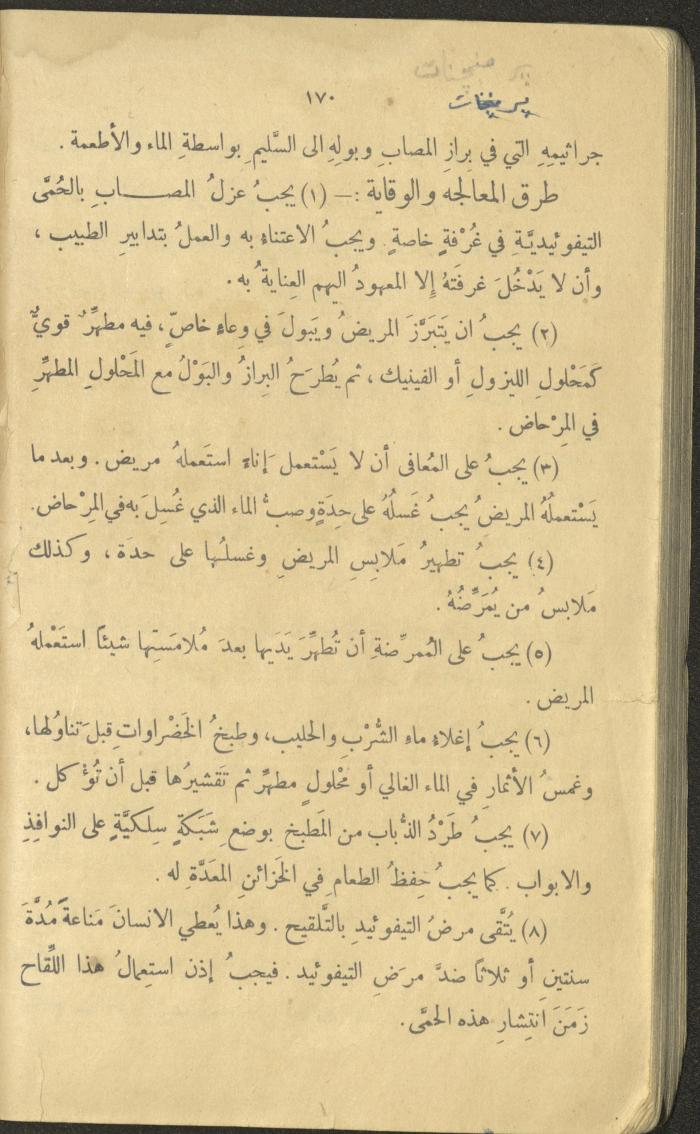 ١٧٠
جراثيمِهِ التي في برازِ المصابِ وبولِهِ الى السَّليمِ بواسطةِ الماء والأطعمة .
طرق المعالجه والوقاية :— (١) يجبُ عزلُ المصابِ بالحُمَّى
التيفوئيديَّةِ في غُرْفةٍ خاصةٍ ويجبُ الاعتناء به والعملُ بتدابيرِ الطبيب ،
وأن لا يَدْخُلَ غرفَتهُ إِلا المعهودُ اليهم العِنايةُ به .
(٢) يجبُ ان يَتَبَرَّزَ المريضُ ويَبولَ في وِعاءِ خاصّ ، فيه مطهِّرٌ قويٌّ
كَمَحْلولِ الليزولِ أو الفينيك ، ثم يُطرَحُ البِرازُ والبَوْلُ مع المَحْلولِ المطهِّرِ
في المِرْحاض .
(٣) يجبُ على المُعافى أن لا يَسْتعملَ إناءِ استَعملهُ مريض . وبعدما
يَسْتعملُهُ المريضُ يجبُ غَسلُهُ على حِدَةٍ وصبُّ الماء الذي غُسِلَ به في المِرْحاض .
(٤) يجبُ تطهيرُ مَلابِسِ المريضِ وغسلُها على حدَة ، وكذلك
مَلابسُ من يُمَرِّضُهُ .
(٥) يجبُ على المُمرِّضةِ أن تُطهِّرَ يَدَيها بعدَ مُلامَستِها شيئاً استَعْملهُ
المريض .
(٦) يجبُ إغلاءِ ماءِ الشُّرْبِ والحليب ، وطبخُ الخَضْراواتِ قبلَ تناوُلها ،
وغمسُ الأثمارِ في الماء الغالي أو مَحْلولٍ مطهِّر ثم تَقشيرُها قبل أن تُؤْكل .
(٧) يجبُ طَرْدُ الذُّباب من المَطبخِ بوضعِ شَبَكَةٍ سِلكيَّةٍ على النوافِذِ
والابواب . كما يجبُ حِفظُ الطعامِ في الخَزائنِ المعَدَّةِ له .
(٨) يُتَّقى مرضُ التيفوئيدِ بالتَّلقيح . وهذا يُعطي الانسانَ مَناعةً مُدَّةَ
سنتينِ أو ثلاثاً ضدَّ مرَضِ التيفوئيد . فيجبُ إِذن استِعمالُ هذا اللِّقاح
زَمَنَ انتِشارِ هذه الحمَّى .